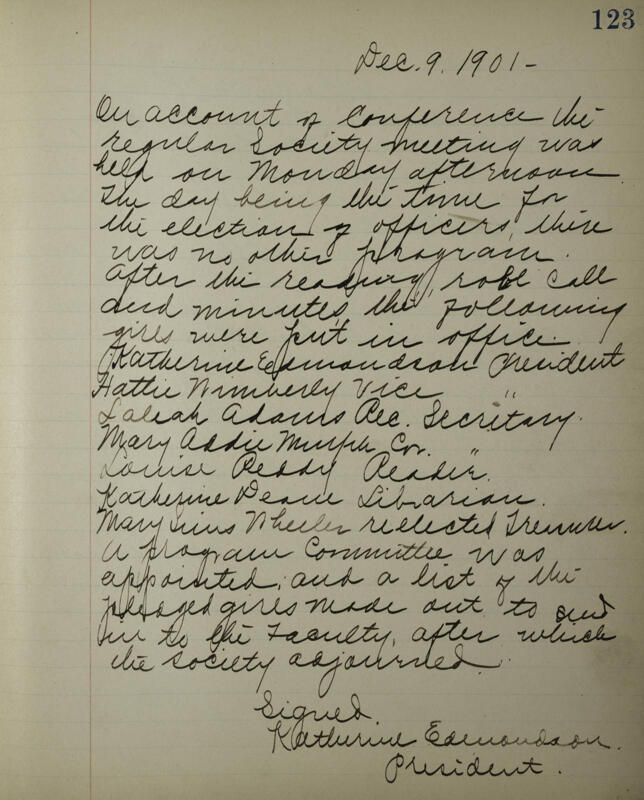 123
Dec. 9. 1901-
On account of Conference the
regular Society meeting was
held on Monday afternoon.
The day being the time for
the election of officers, there
was no other program.
After the reading, roll call
and minutes, the following
girls were put in office.
Katherine Edmondson President
Hattie Wimberly Vice "
Laleah Adams Rec. Secretary.
Mary Addie Murph Cor. "
Louise Peddy Reader.
Katherine Deane Librarian.
Mary Wheeler reelected Treasurer.
A program Committee was
appointed, and a list of the
pledged girls made out to
in to the Faculty, after which
the society adjourned.
Signed.
Katherine Edmondson.
President.